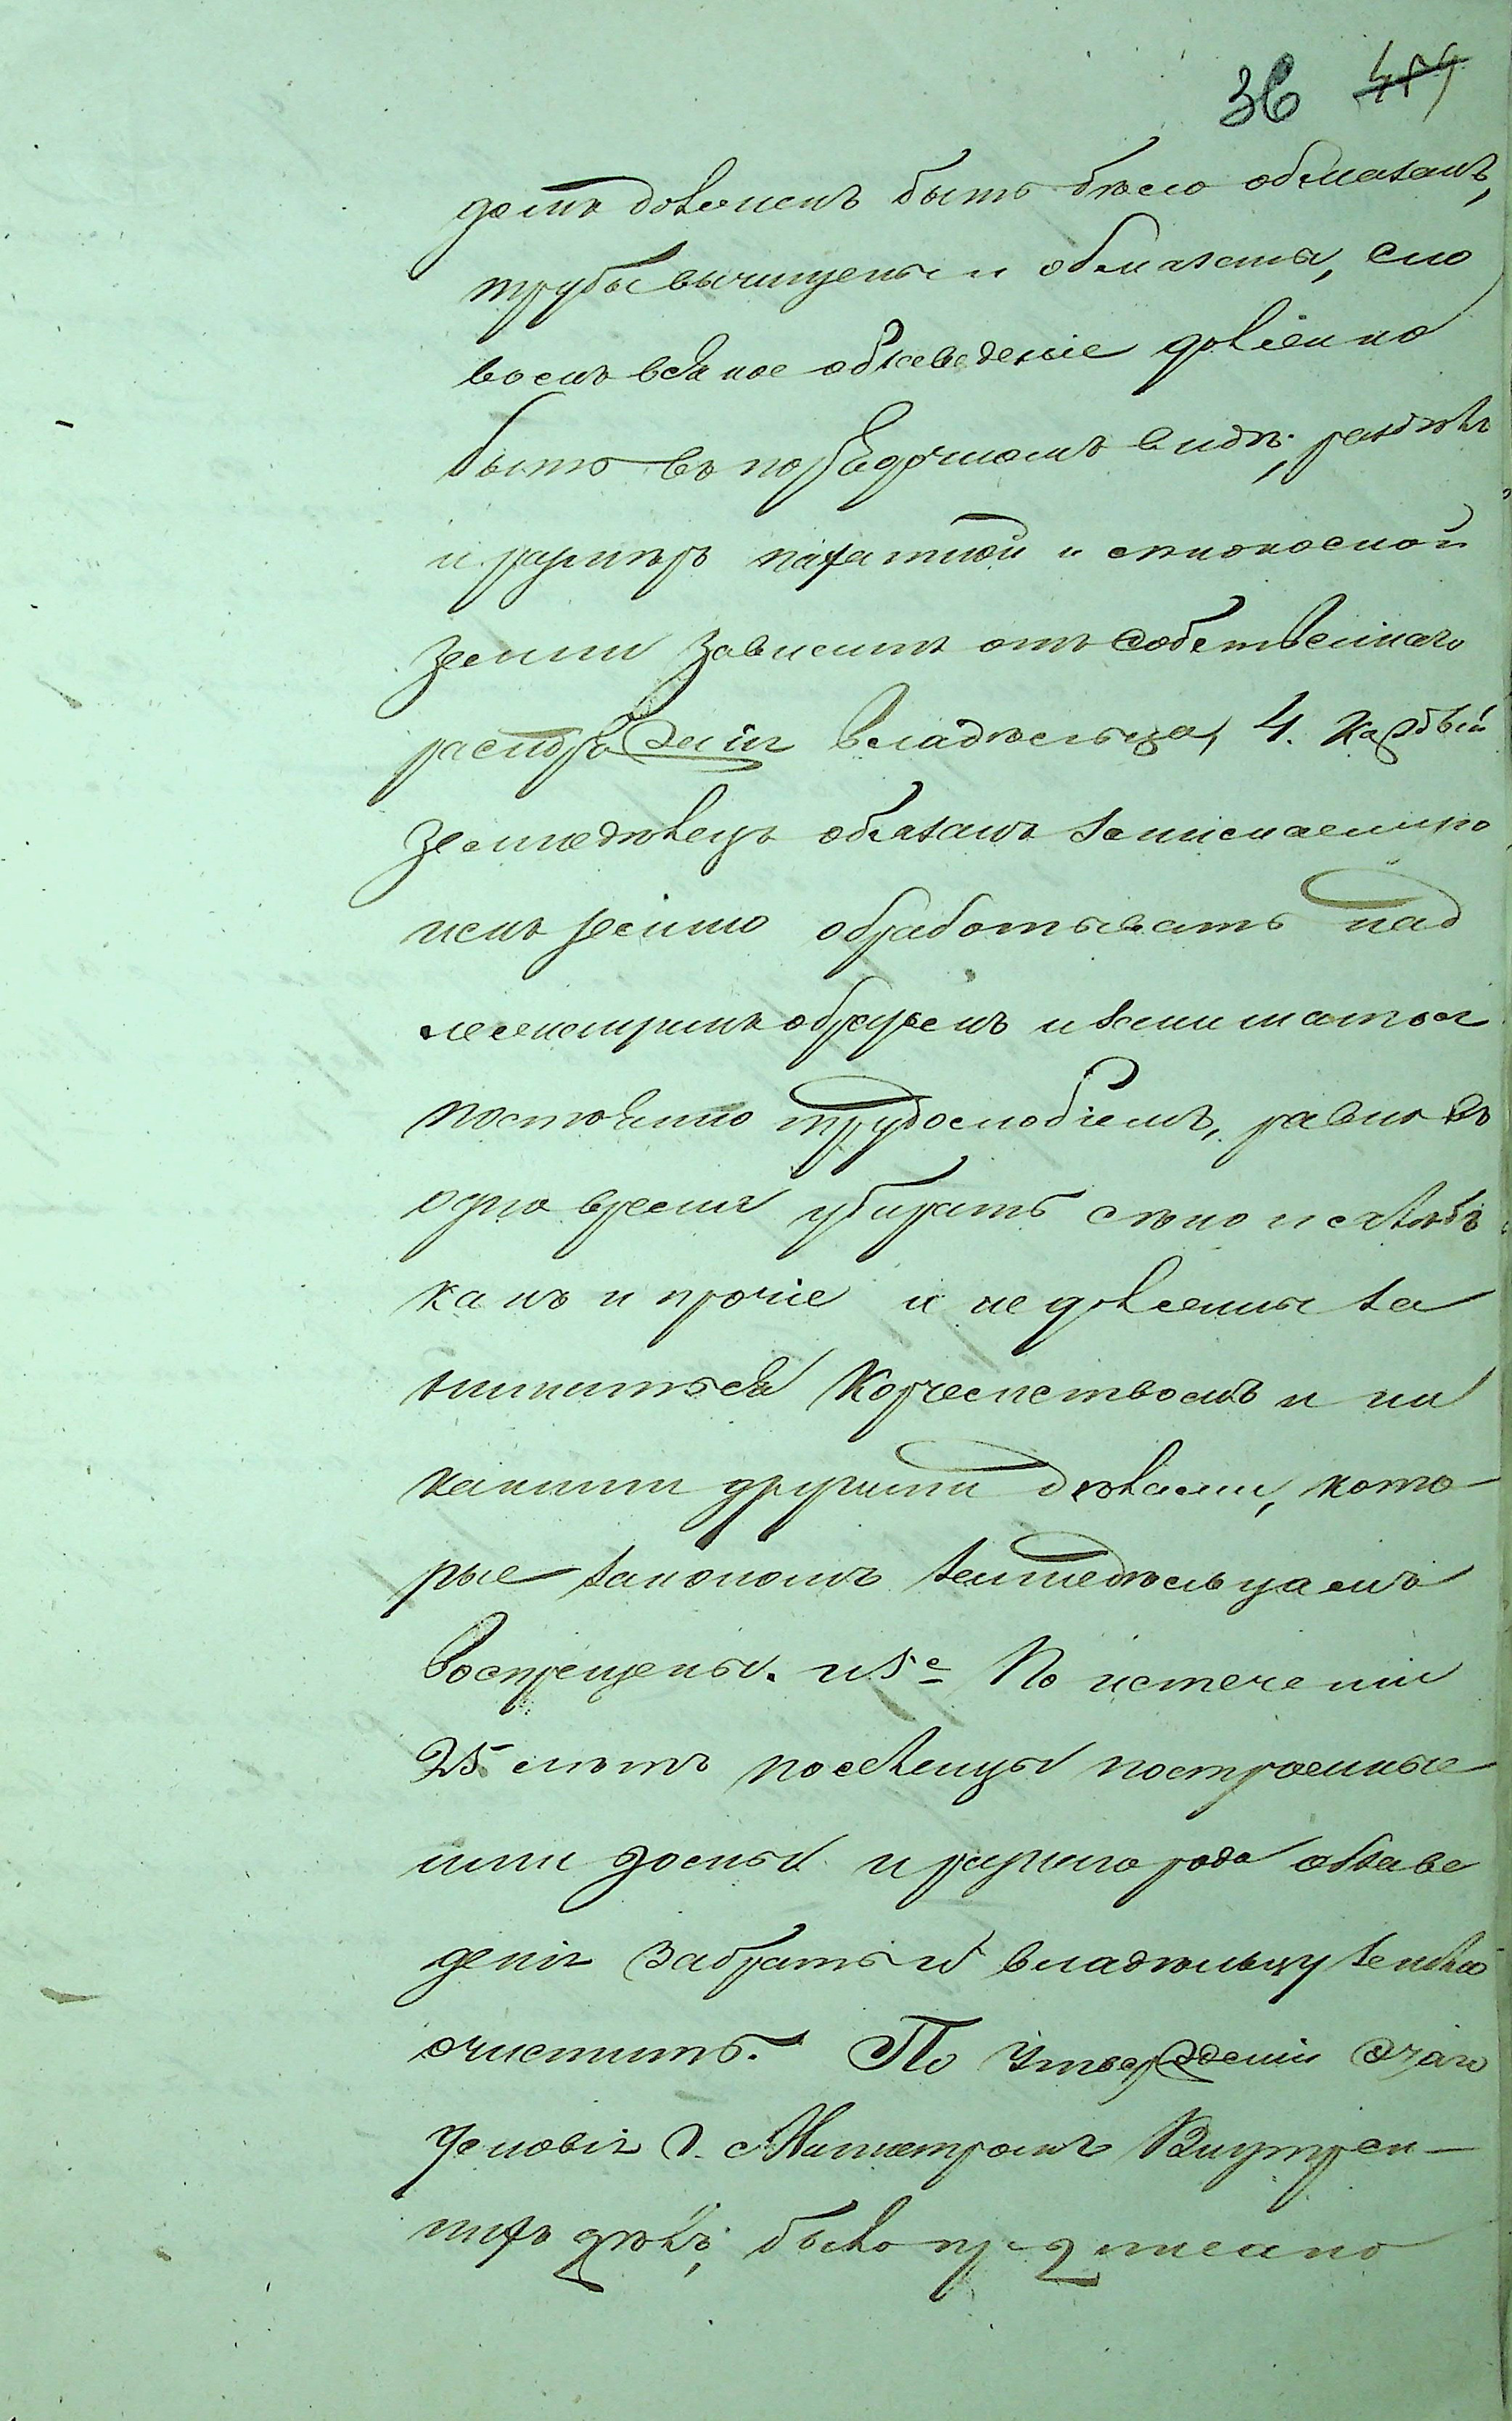 36 479
домъ долженъ быть бѣло обмазанъ,
трубы вычищены и обмазаны, сло
вомъ всякое обзаведеніе должно
быть въ порядочномъ видѣ; раздѣлъ
и размѣръ пахатной и сѣнокосной
земли зависитъ отъ собственнаго
распоряженія владѣльца, 4. Каждый
земледѣлецъ обязанъ занимаемую
имъ землю обработывать над
лежащимъ образомъ и заниматся
постоянно трудолюбіемъ, равно въ
одно время убирать сѣно и хлѣбъ
какъ и прочіе и не должны за
ниматься Корчемствомъ и ни
какими другими дѣлами, кото
рые закономъ земледѣльцамъ
воспрещены. и 5е По истеченіи
25 лѣтъ поселенцы построенные
ими домы и разнаго рода обзаве
денія забрать и владѣльцу землю
очистить. По утвержденіи сего
условія Г. Министромъ Внутрен
нихъ дѣлъ, было предписано